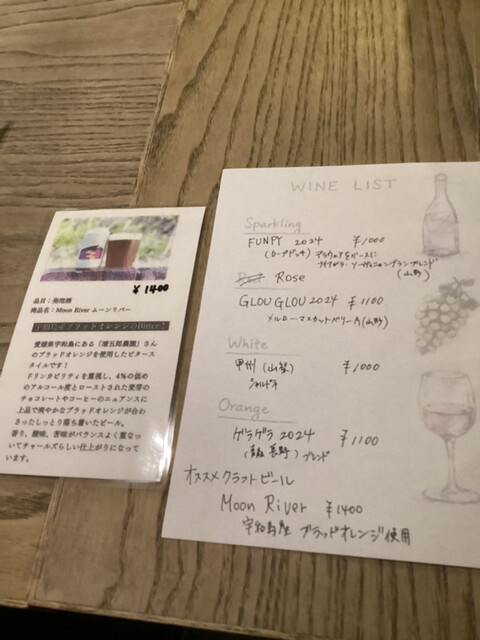 ¥1400
品目：発泡酒
商品名：Moon River ムーンリバー
宇和島産ブラッドオレンジのBitter！
愛媛県宇和島にある「清五郎農園」さん
のブラッドオレンジを使用したビタース
タイルです！
ドリンカビリティを重視し、4％の低め
のアルコール度とローストされた麦芽の
チョコレートやコーヒーのニュアンスに
上品で爽やかなブラッドオレンジが合わ
さったしっとり落ち着いたビール。
香り、酸味、苦味がバランスよく重なっ
ていてチャールズらしい仕上がりになって
います。
WINE LIST
Sparkling
FUNPY 2024 ¥1000
デラウェアをベースに
ブレンド
(山形)
Rose
GLOU GLOU 2024 ¥1100
メルロー・マスカットベリーA(山形)
White
甲州 (山梨) ¥1000
Orange
ゲラゲラ 2024 ¥1100
長野) ブレンド
オススメクラフトビール
Moon River ¥1400
宇和島産 ブラッドオレンジ使用